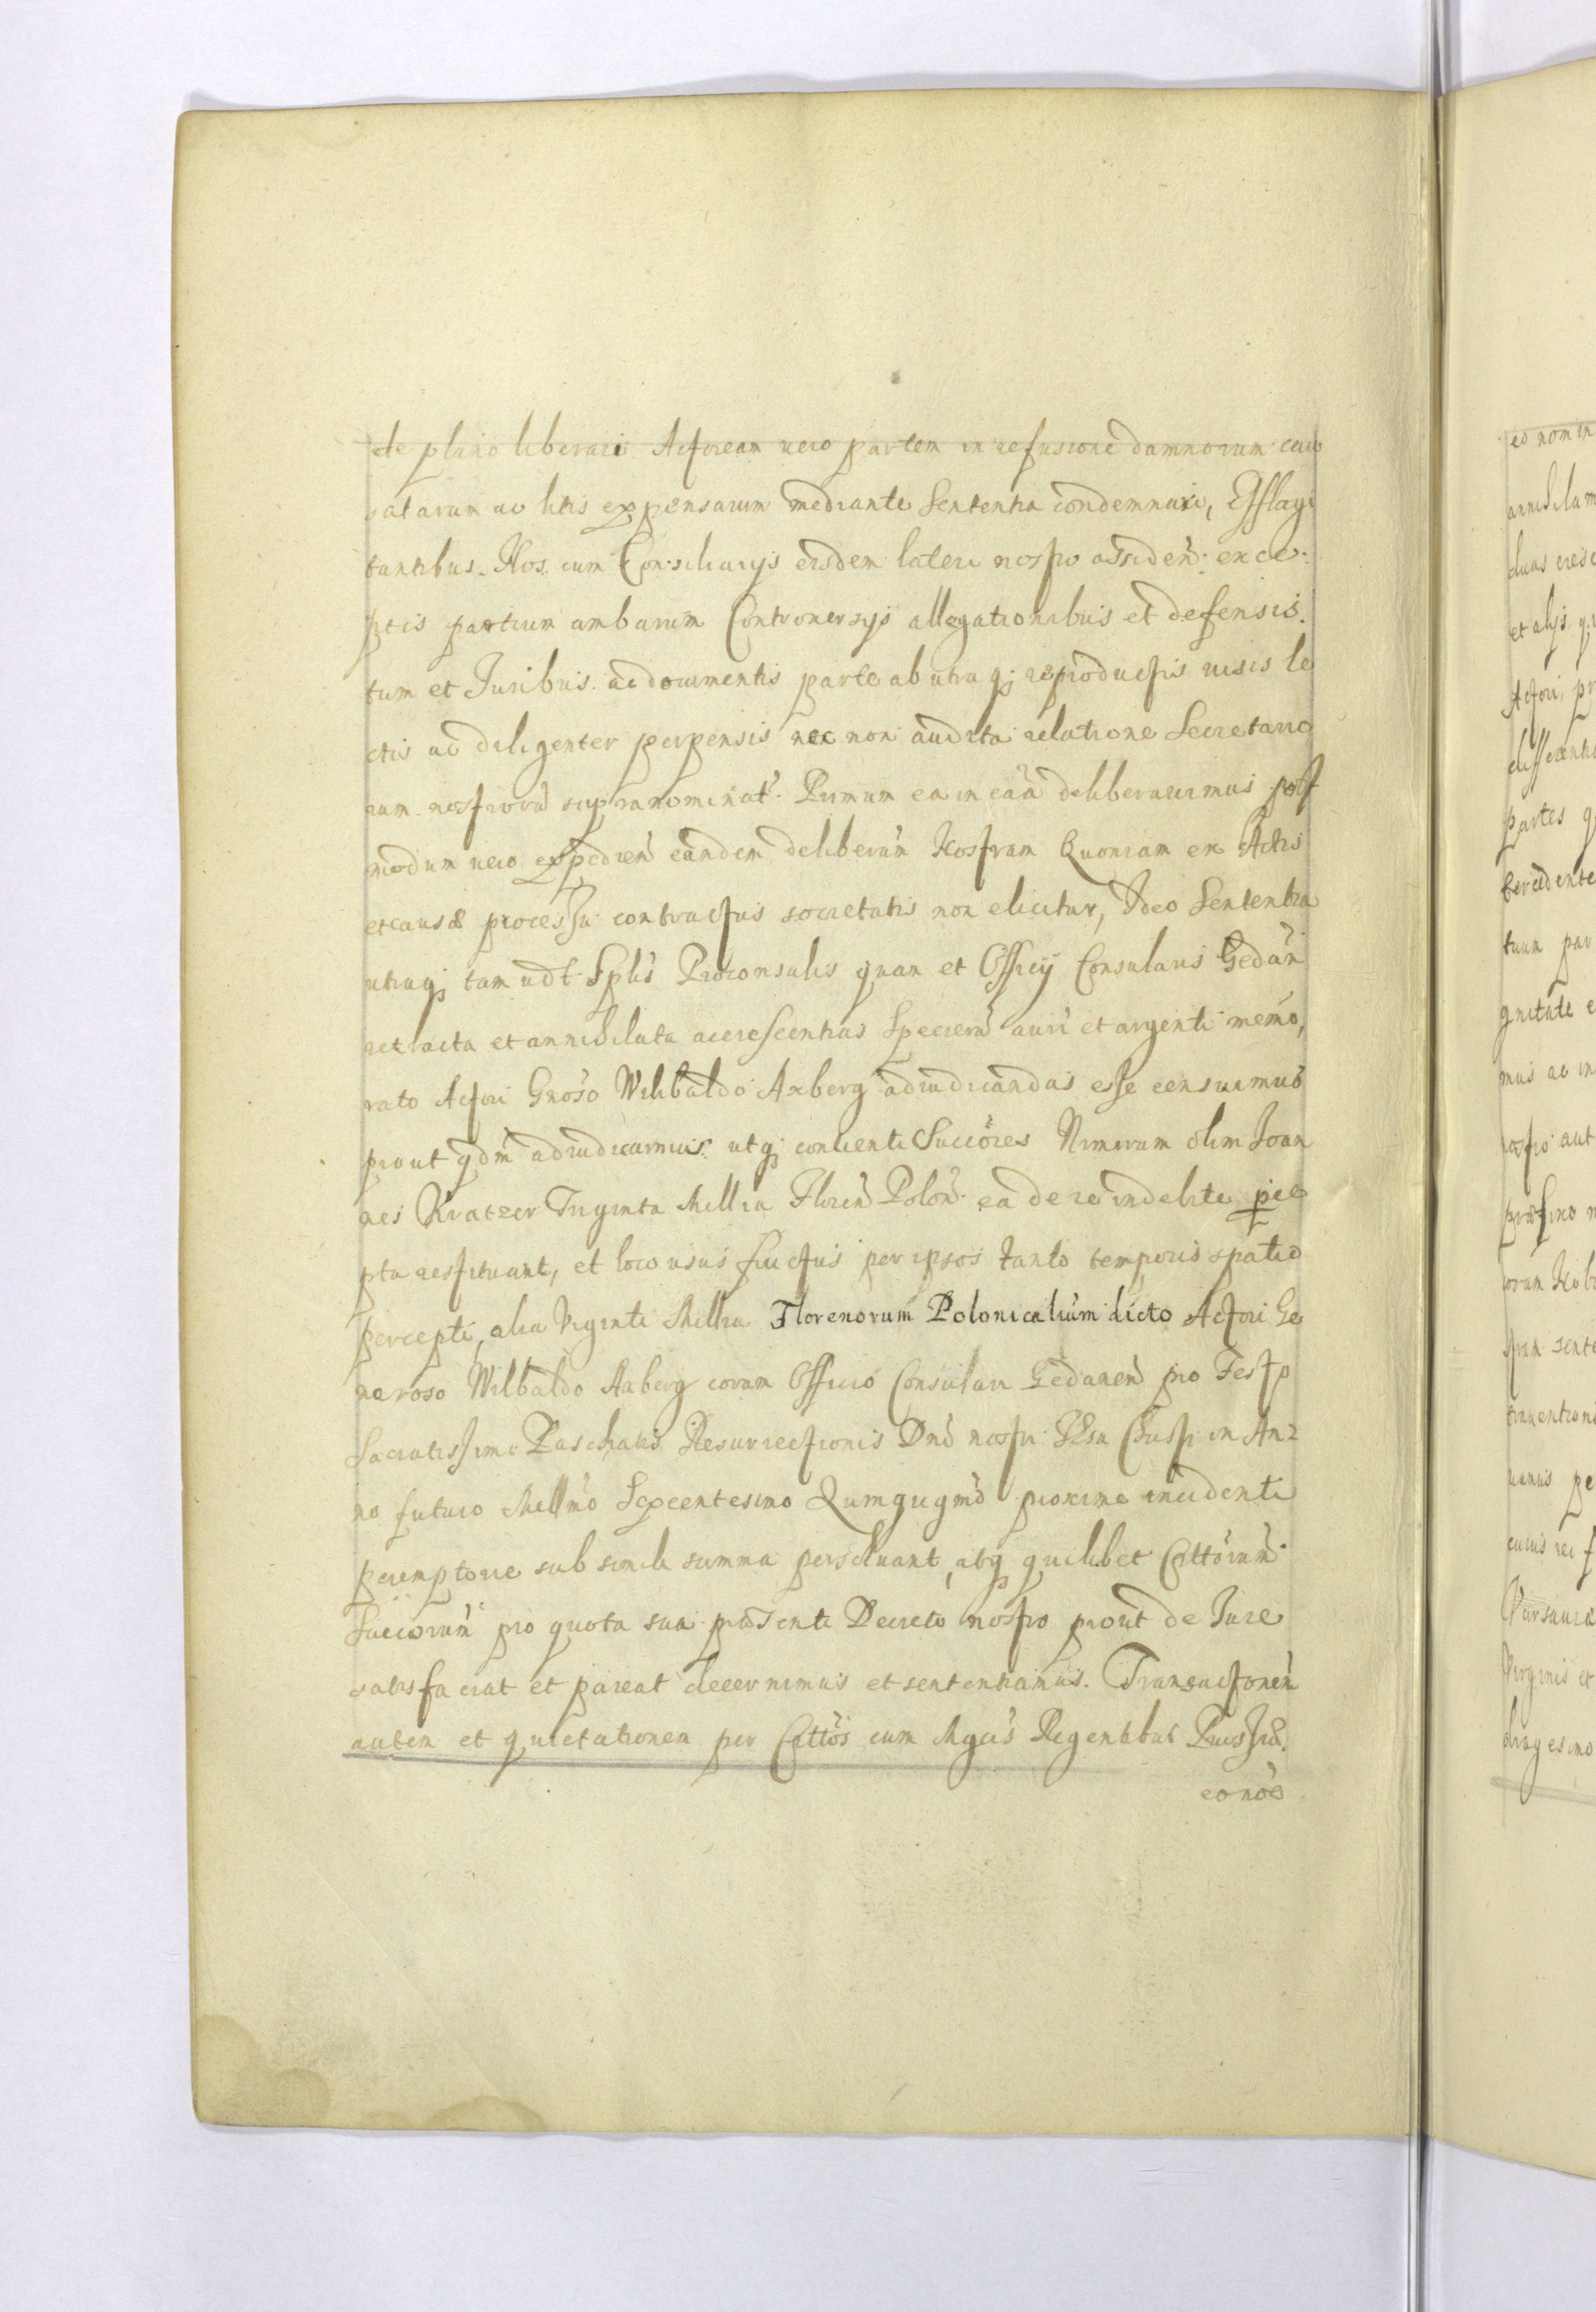 de plano liberari Actoream vero partem in refusione damnorum cau
satarum ac litis expensarum mediante Sententia condemnari, Efflagi
tantibus. Nos cum Consiliarijs eisdem lateri nostro assideñ: exce:
ptis partium ambarum Controuersijs allegationibus et defensis.
tum et Juribus ac documentis parte ab utraq; reproductis uisis le
ctis ac diligenter perpensis nec non audita relatione Secretario
rum nostrorũ supranominat̃. Primum ea in cãã deliberauimus post
modum uero expedieñ eandem deliberañ Nostram Quoniam ex Actis
et causæ processu contractus societatis non elicitur, Ideo Sententia
utraq; tam Splis Proconsulis quam et Officij Consularis Gedañ
retracta et annihilata accrescentias Specierũ auri et argenti memo,
rato Actori Gnoso Wilibaldo Axberg adiudicandas esse censuimus
prout qdm̃ adiudicamus. utq; conuenti Succores Nimirum olim Joan
nes Kratzer Triginta Millia Floreñ Poloñ. ea de re indebite perce
pta restituant, et loco usus fructus per ipsos tanto temporis spatio
percepti, alia Viginti Millia Florenorum Polonicalium dicto Actori Ge
neroso Wilbaldo Axberg coram Officio Consulari Gedaneñ pro Festo
Sacratissimi Paschatis Resurrectionis Dni nostri Jesu Christi in An
no futuro Millmo Sepcentesimo Qumqugmo proxime incidenti
peremptorie sub simili summa persoluant, atq; quilibet Cittorum
Succorum pro quota sua præsenti Decreto nostro prout de Jure
satisfaciat et pareat decernimus et sententiamus. Transactionem
autem et quietationem per Cittos cum Mgcis Regentibus Prussiæ.
eo noe